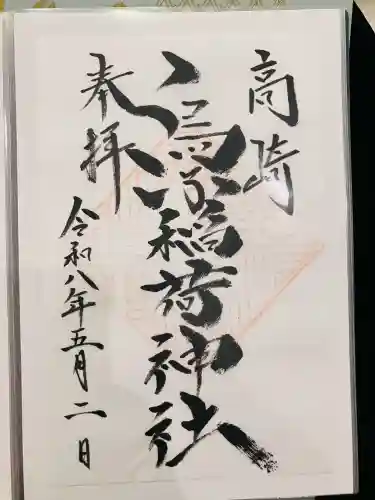 高崎
烏子稲荷神社
奉拝
令和八年五月二日